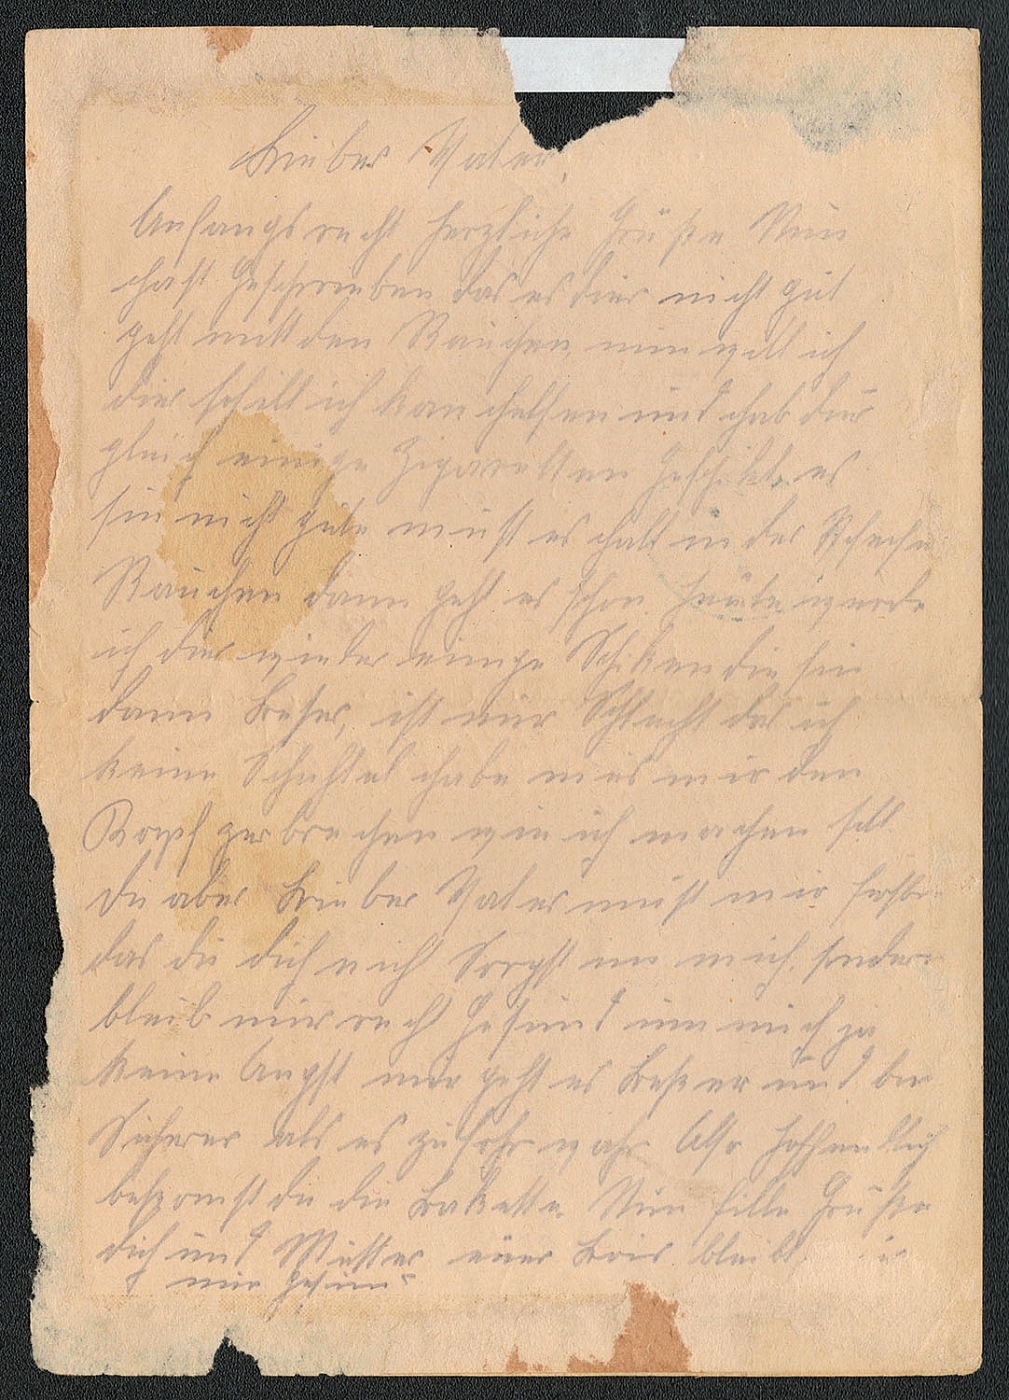 Lieber Vater,
Anfangs recht herzliche Grüße Nun
hast geschrieben das es dier nicht gut
geht mitt den Rauchen, nun will ich
dier ich kan helfen und hab dier
gleich einige Zigaretten geschikt, es
sin nicht gute must es halt in der
Rauchen dann geht es schon. Heute werde
ich dier wieder einige Schiken die sin
dann Beser, ist nur Schlecht das ich
keine Schachtel habe mus mir den
Kopf zerbrechen wie ich machen soll.
Du aber Lieber Vater must mir
das du dich nicht Sorgst um mich. sondern
bleib mir recht gesund um mich ja
keine Angst mir geht es Beßer und bin
Sicherer als es zufohr wahr Also hoffendlich
bekomst du die Nun fille Grüße
dich und Mutter euer bleibt
mir gesund